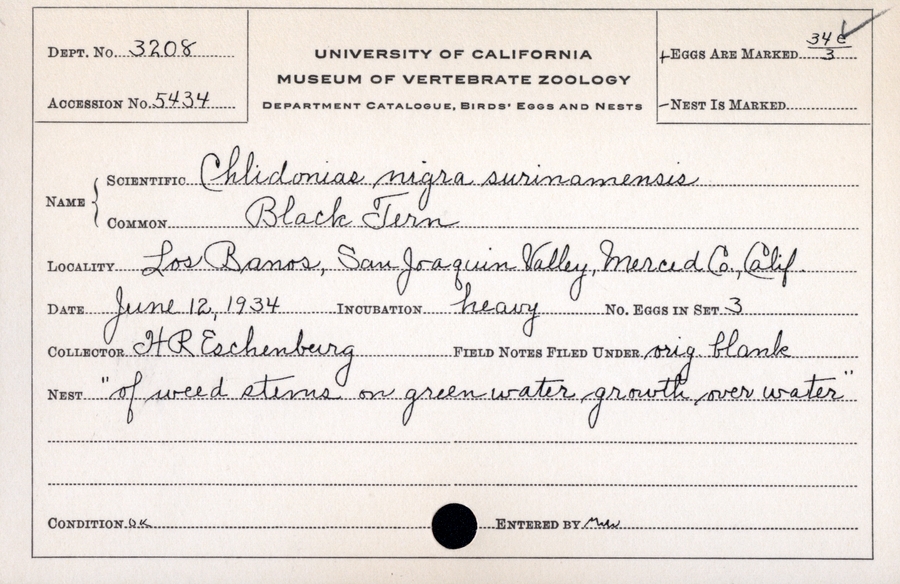 Dept. No. 3208
Accession No. 5434
UNIVERSITY OF CALIFORNIA
MUSEUM OF VERTEBRATE ZOOLOGY
Department Catalogue, Birds' Eggs and Nests
+Eggs Are Marked 34c/3
-Nest Is Marked
Name
Scientific Chlidonias nigra surinamensis
Common Black Tern
Locality Los Banos, San Joaquin Valley, Merced Co., Calif.
Date June 12, 1934 Incubation heavy No. Eggs in Set 3
Collector H R Eschenburg Field Notes Filed Under orig blank
Nest "of weed stems on green water growth over water"
Condition ok Entered by